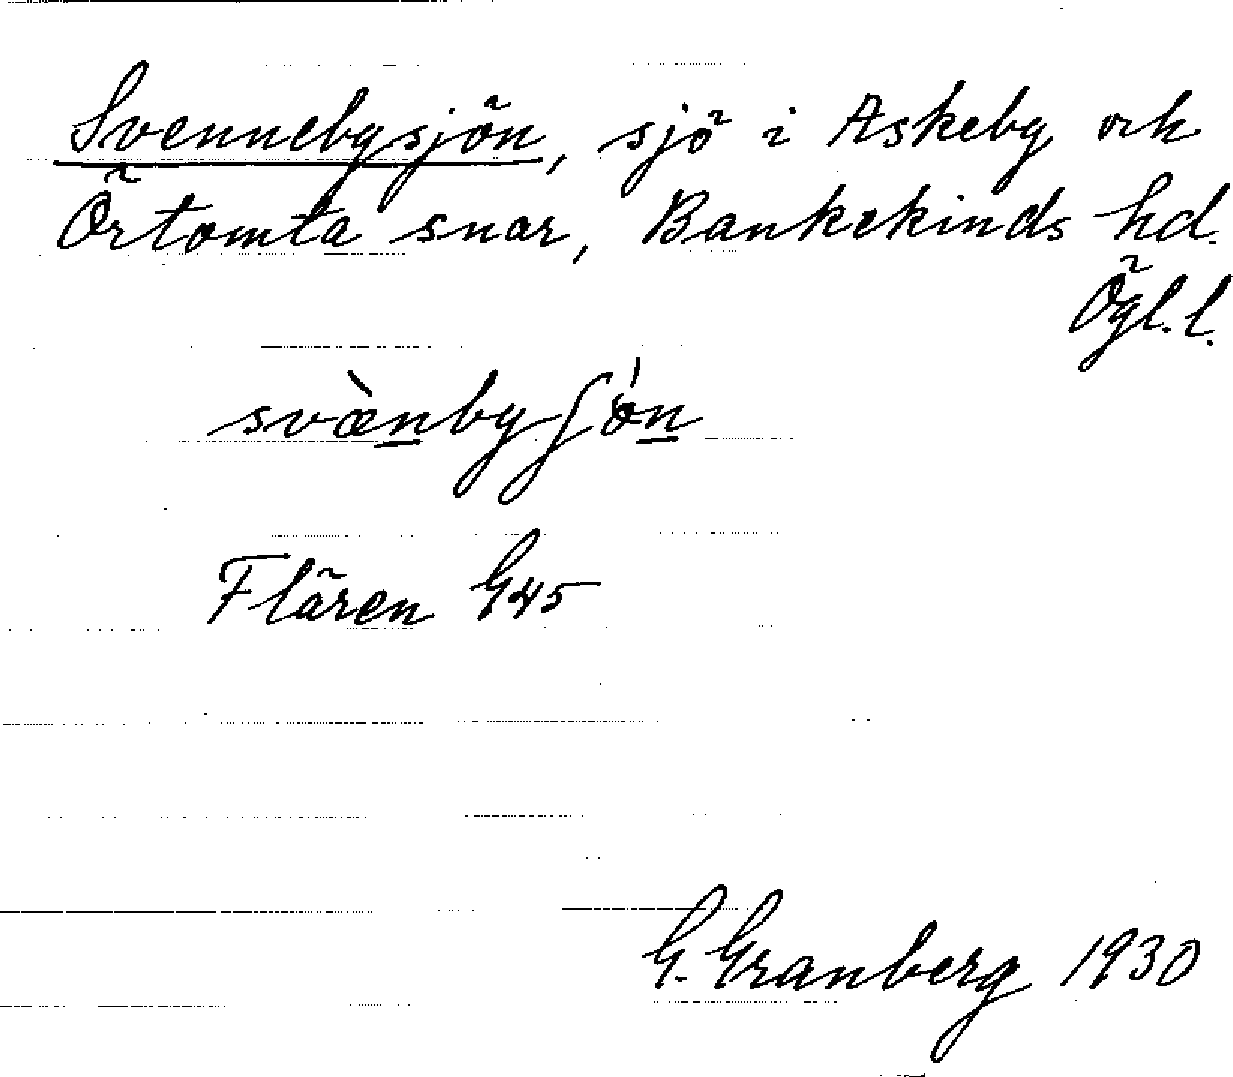 Svennebysjön, sjö i Askeby och
Örtomta snar, Bankekinds hd.
Ögl. l.
svæ̀nbyʃǿn
Flären G45
G. Granberg 1930